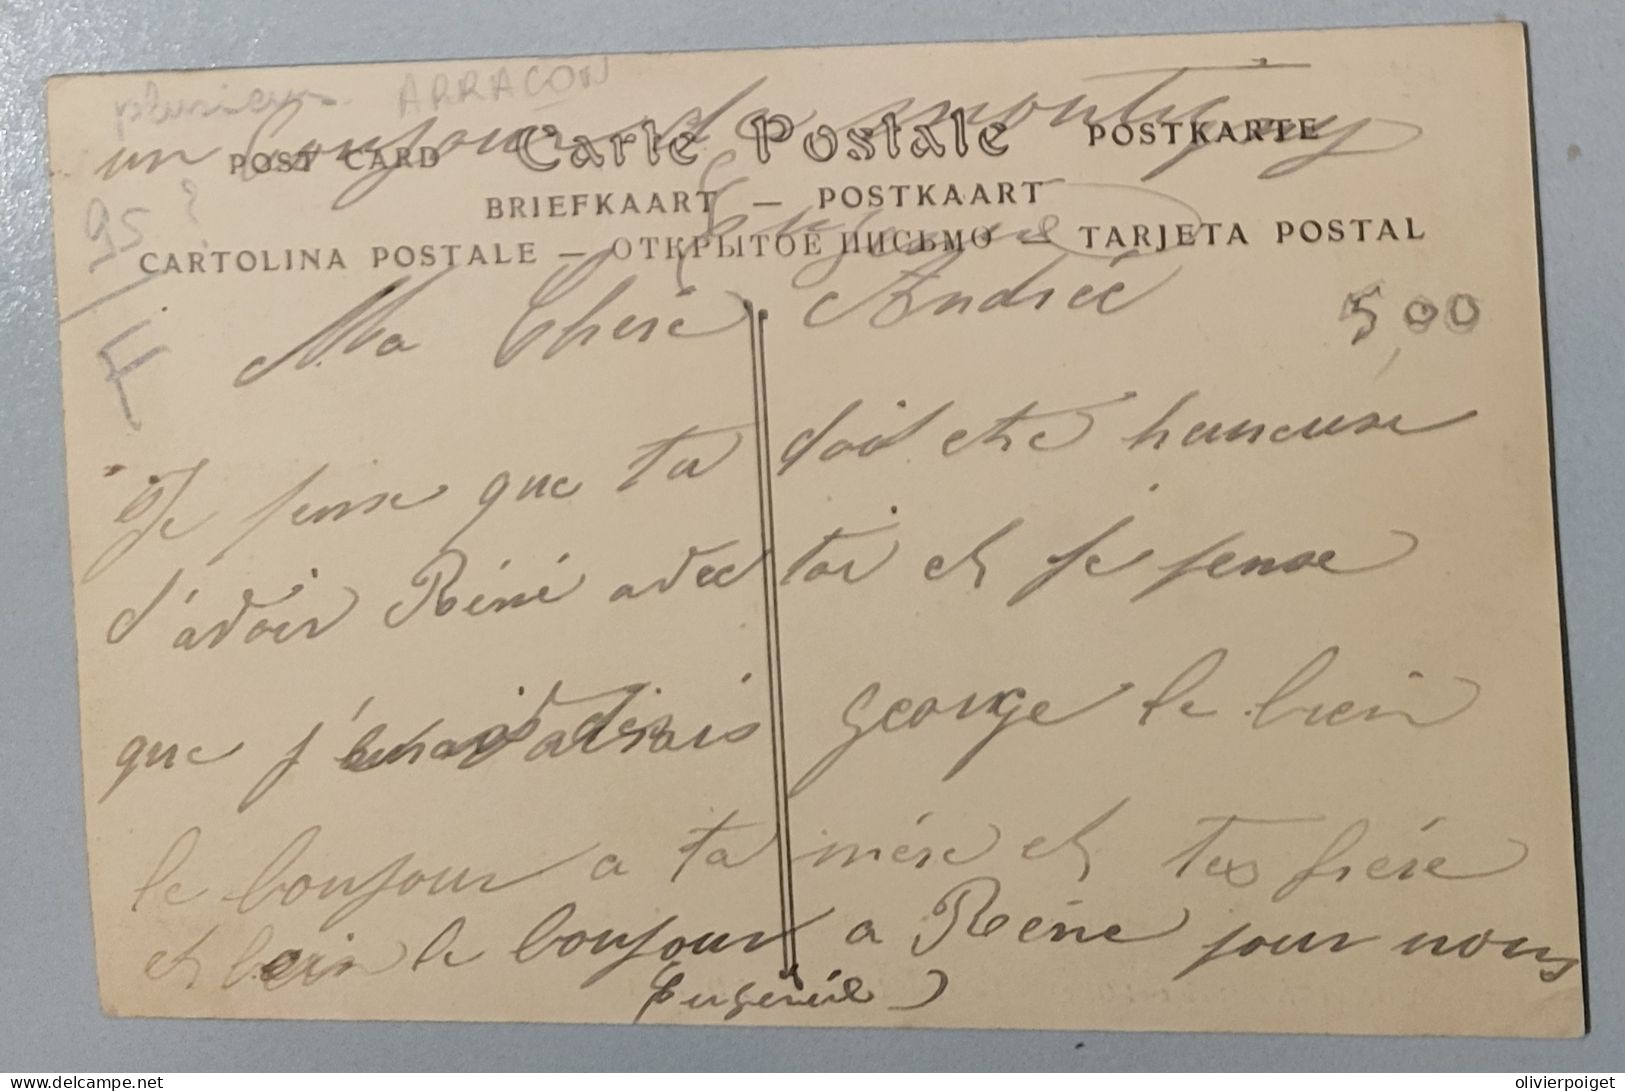 plusieurs ARRACON
un bonjour de montigny
POST CARD Carte Postale POSTKARTE
BRIEFKAART — POSTKAART
Eugenie
CARTOLINA POSTALE — ОТКРЫТОЕ ПИСЬМО — TARJETA POSTAL
95 ?
F
5,00
Ma Cheré Andreé
Je pense que ta doit etre heureuse
d'avoir Réné avec toi et je pense
que j' George le bien
le bonjour a ta mére et tes frére
et bien le bonjour a Réne pour nous
Eugénie
delcampe.net
olivierpoiget